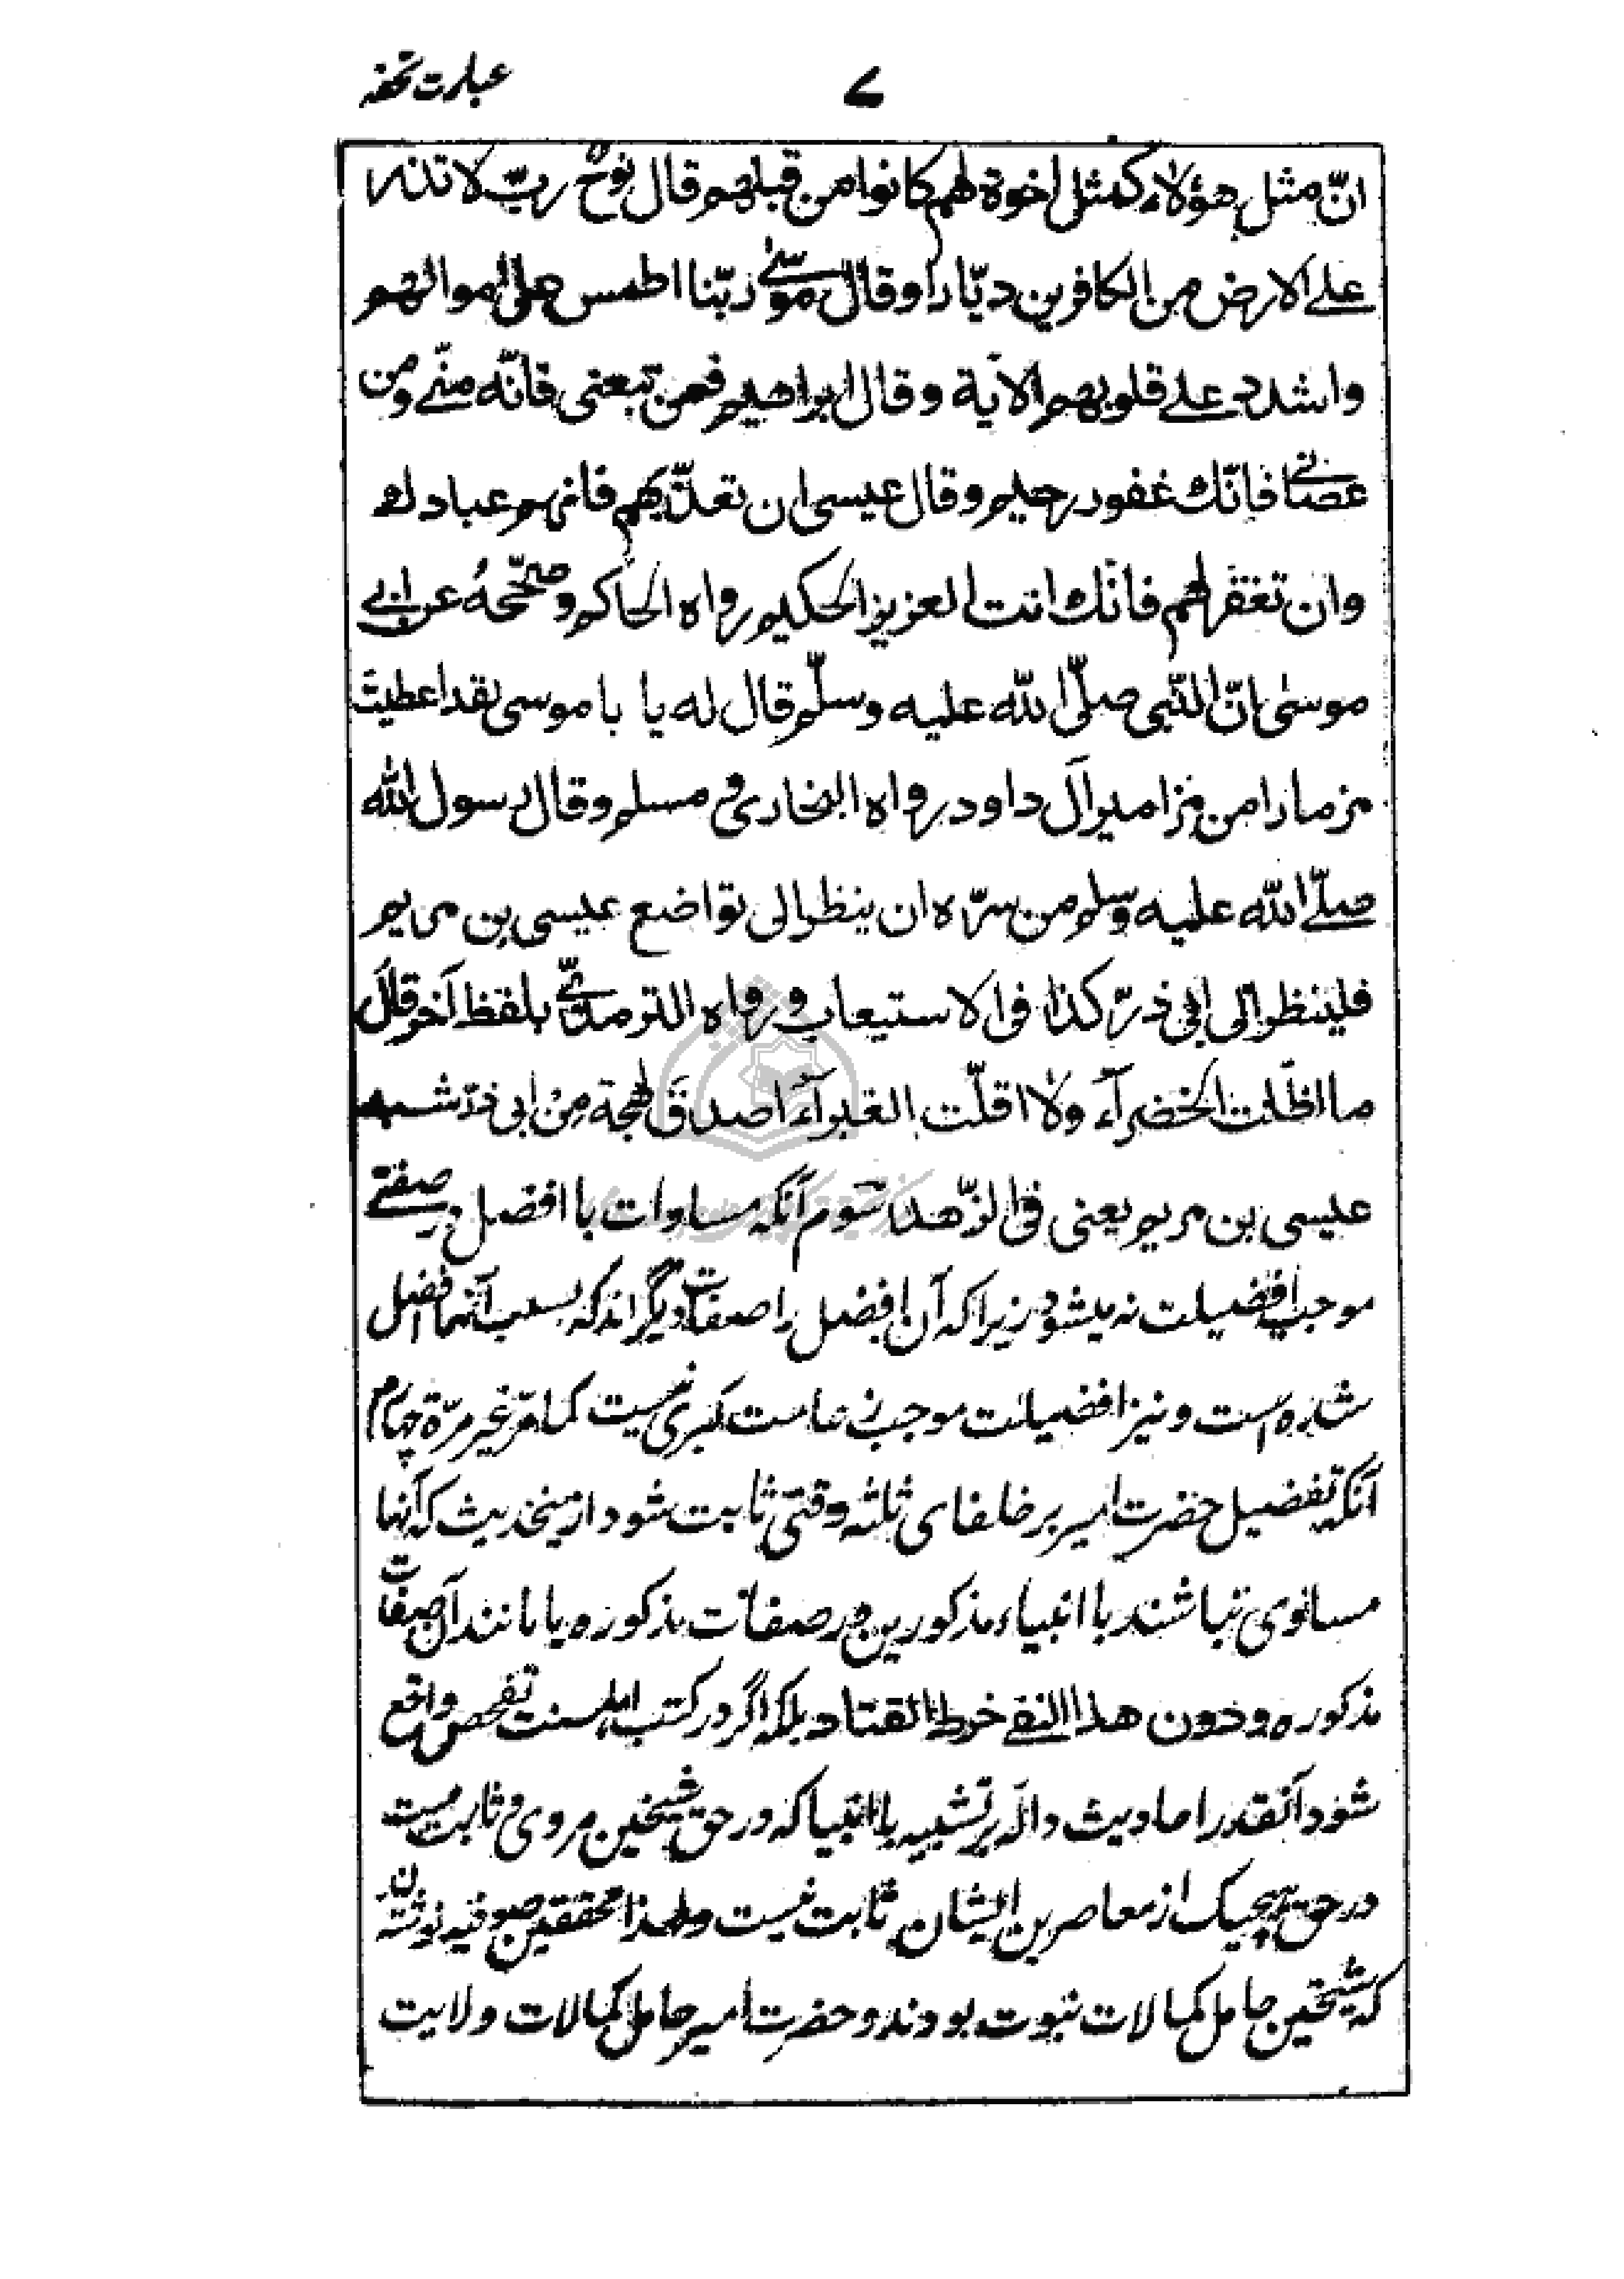 عبارت تحفه
۷
انّ مثل هؤلاء كمثل اخوة لهم كانوا من قبلهم قال نوحٌ ربّ لا تذر
علے الارض من الكافرين ديّارا وقال موسٰے ربّنا اطمس على اموالهم
واشدد علے قلوبهم الآية وقال ابراهيم فمن تبعنى فانّه منّے ومن
عصانے فانّك غفور رحيم وقال عيسى ان تعذّبهم فانهم عبادك
وان تغفر لهم فانّك انت العزيز الحكيم رواه الحاكم وصحّحهُ عن ابے
موسٰى انّ النّبى صلّى اللّه عليه وسلّم قال له يا با موسى لقد اعطيتَ
مزمارا من مزامير آل داود رواه البخارى و مسلم وقال رسول الله
صلّے اللّه عليه وسلم من سرّه ان ينظر الى تواضع عيسى بن مريم
فلينظر الى ابى ذرّ كذا فى الاستيعاب و رواه الترمذىّ بلفظ آخر قال
ما اظلّت الخضرآء ولا اقلّت الغبرآءُ اصدقَ لهجة مِنْ ابى ذرّ شبه
عيسى بن مريم يعنى فى الزّهد سّوم آنكه مساوات با افضل در صفتے
موجب افضيلت نه ميشود زيرا كه آن افضل را صفات ديگر اند كه بسبب آنها افضل
شده است و نيز افضيلت موجب زعامت كبرى نيست كما مرّ غير مرّة چهارم
آنكه تفضيل حضرت امير بر خلفاى ثلثه وقتى ثابت شود ازينحديث كه آنها
مساوى نباشند با انبياء مذكورين در صفات مذكوره يا مانند آن صفات
مذكوره و دون هذا النفے خرط القتاد بلكه اگر در كتب اهلسنت تفحص واقع
شود آنقدر احاديث دالّه بر تشبيه با انبيا كه در حق شيخين مروى و ثابت است
در حق هيچيك از معاصرين ايشان ثابت نيست و لهذا محققين صوفيه نوشته‌اند
كه شيخين حامل كمالات نبوت بودند و حضرت امير حامل كمالات ولايت